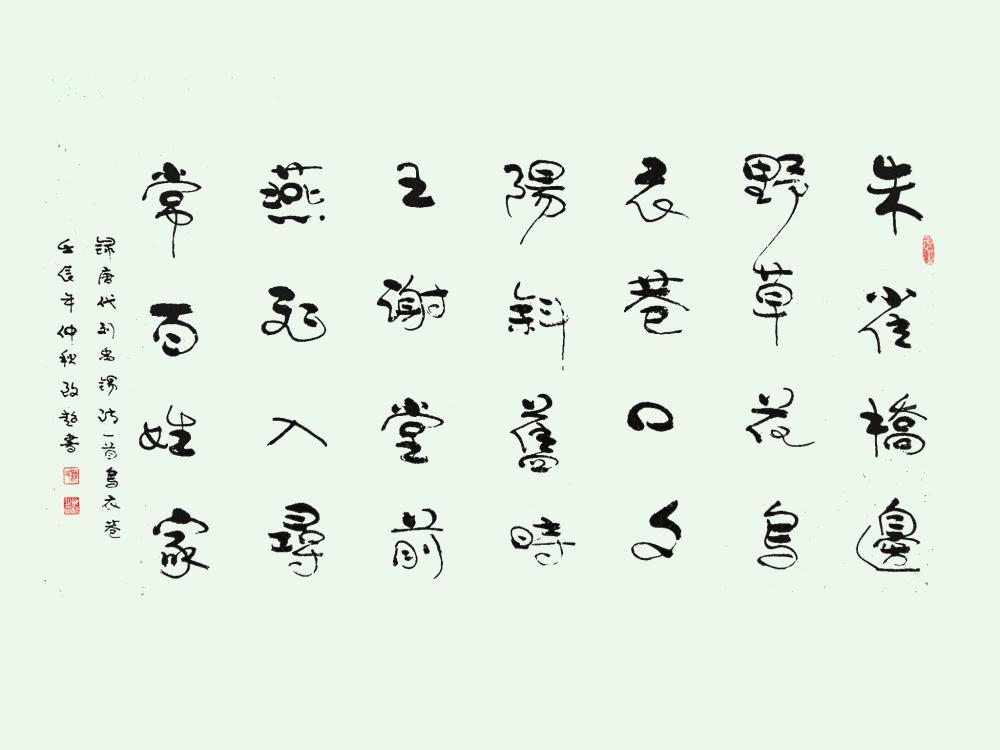 朱雀橋邊
野草花烏
衣巷口夕
陽斜舊時
王謝堂前
燕飛入尋
常百姓家
錄唐代刘禹錫詩一首烏衣巷
壬辰年仲秋書